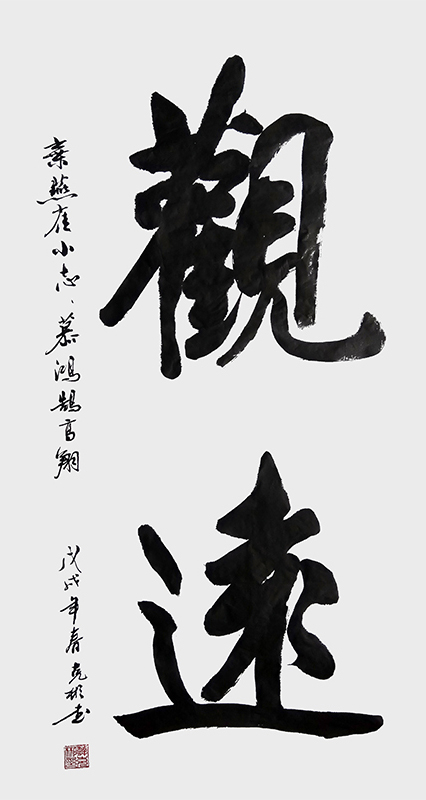 觀遠
棄燕雀小志、慕鴻鵠高翔
戊戌年春克彬書